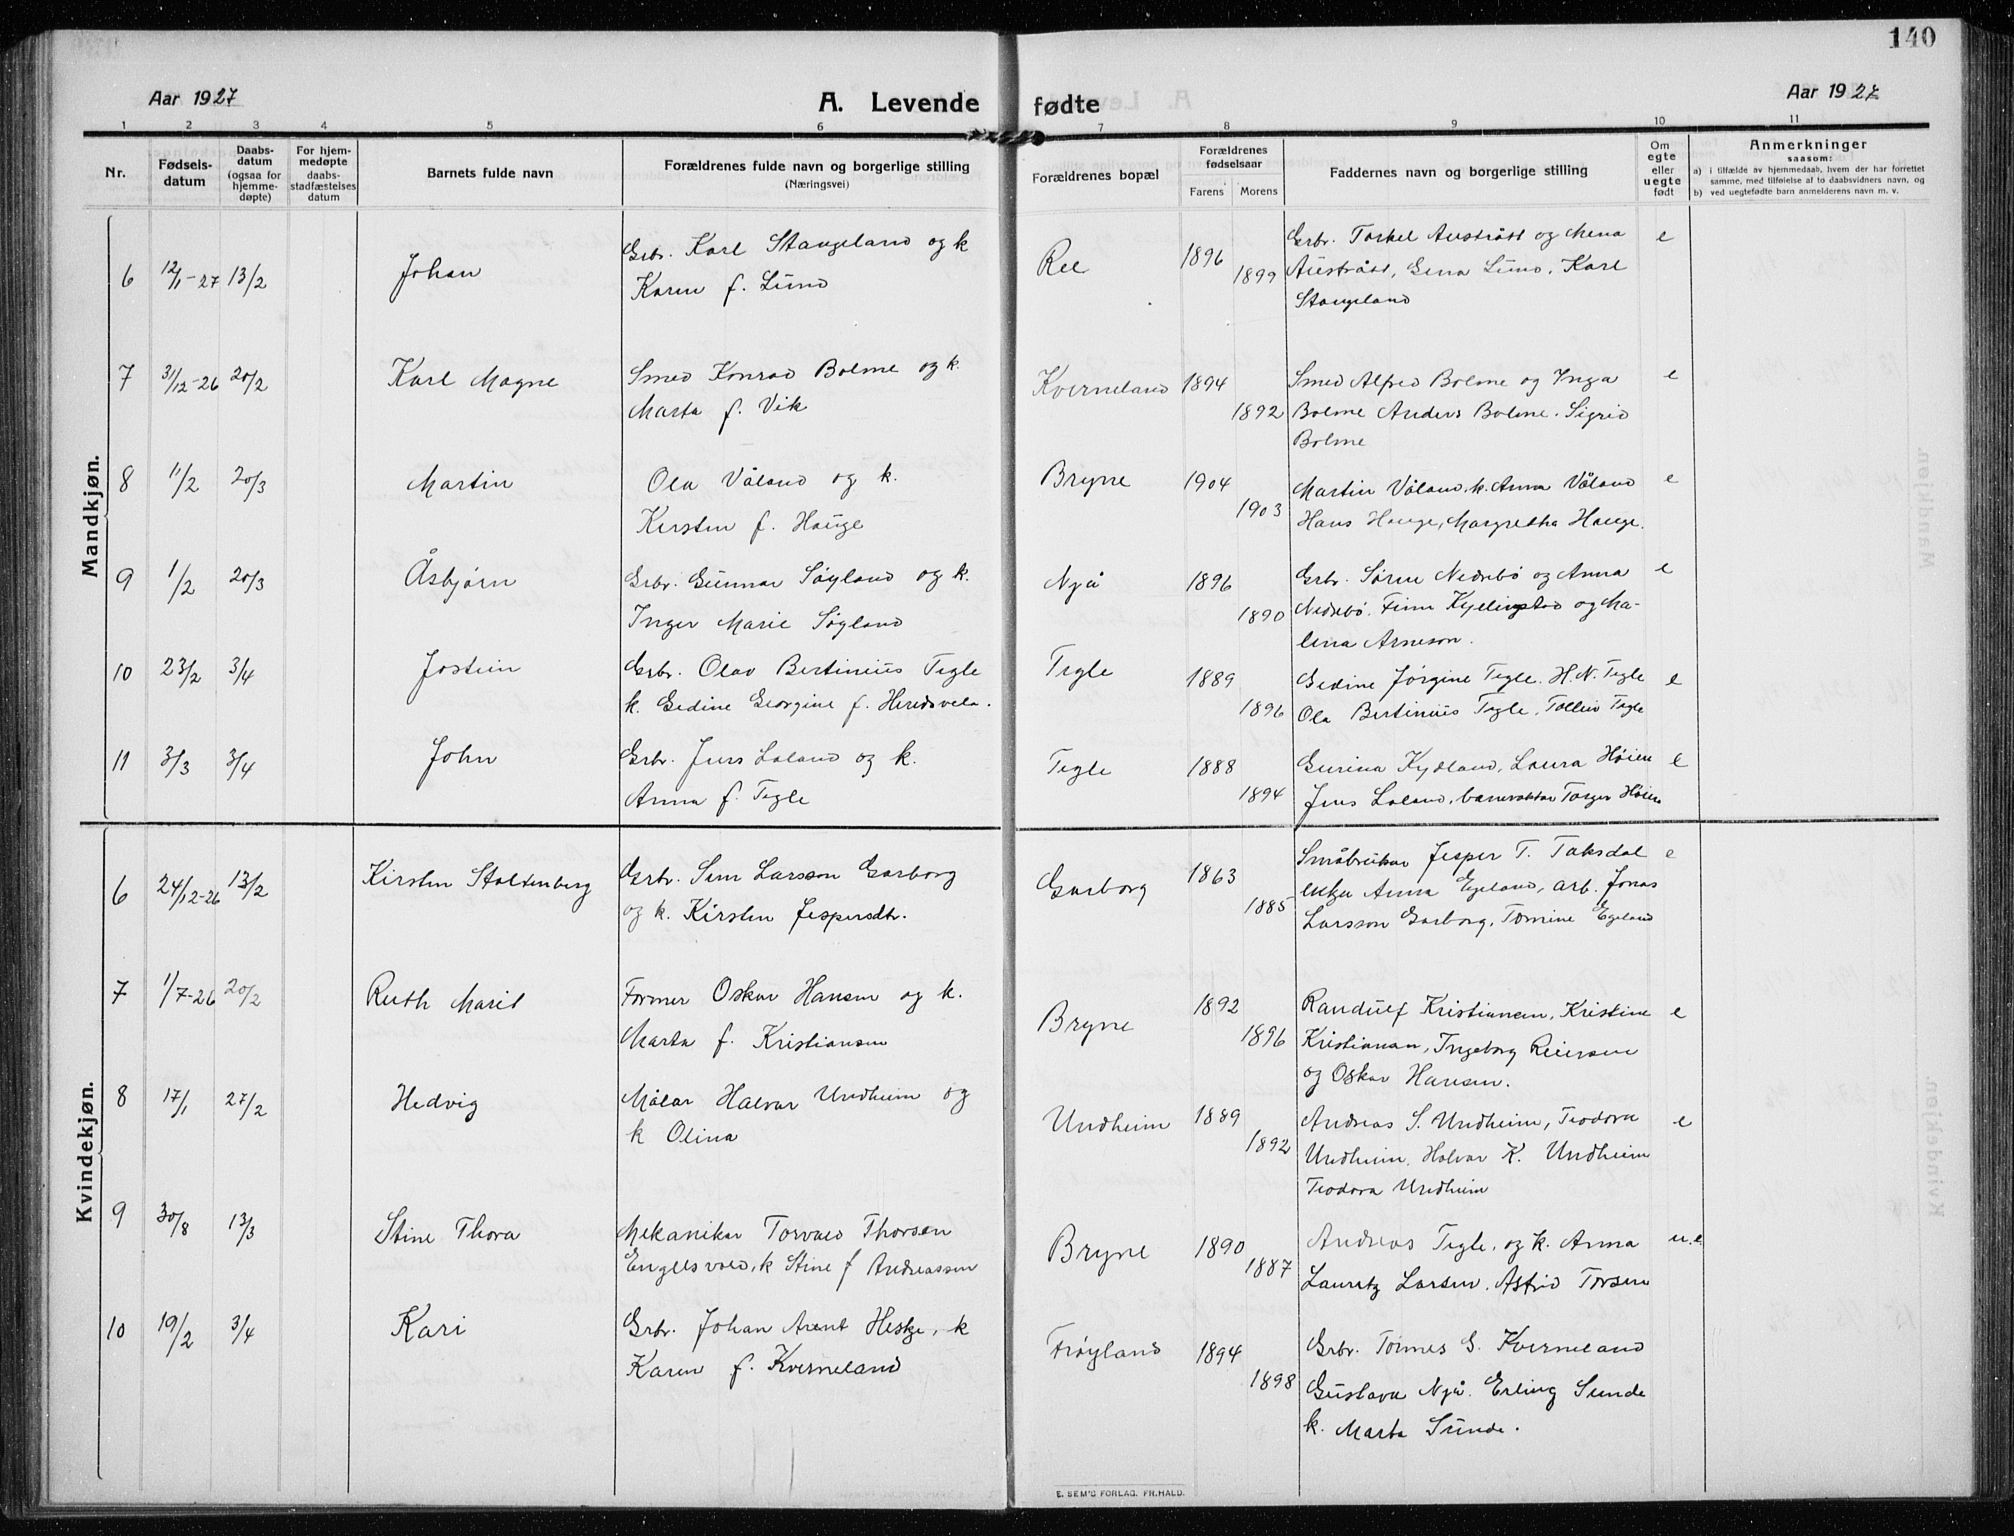 140
Aar 1927
A. Levende fødte
Aar 1927
1 2 3 4 5 6 7 8 9 10 11
Nr.
Fødsels-
datum
Daabs-
datum
(ogsaa for
hjemme-
døpte)
For hjem-
medøpte
daabs-
stadfæstelses
datum
Barnets fulde navn
Forældrenes fulde navn og borgerlige stilling
(Næringsvei)
Forældrenes bopæl
Forældrenes
fødselsaar
Farens Morens
Faddernes navn og borgerlige stilling
Om
egte
eller
uegte
født
Anmerkninger
saasom:
a) i tilfælde av hjemmedaab, hvem der har forrettet
samme, med tilføielse af to daabsvidners navn, og
b) ved uegtefødte barn anmelderens navn m. v.
Mandkjøn.
6 12/1-27 13/2 Johan
Grbr. Karl Stangeland og k
Karen f. Lund
Ree 1896 1899
Grbr. Torkel Austrått og Mena
Austrått, Gina Lund, Karl
Stangeland
e
7 31/12-26 20/2 Karl Magne
Smed Konrad Bolme og k.
Marta f. Vik
Kverneland 1894 1892
Smed Alfred Bolme og Inga
Bolme Anders Bolme. Sigrid
Bolme
e
8 11/2 20/3 Martin
Ola Våland og k.
Kirsten f. Hauge
Bryne 1904 1903
Martin Våland, k. Anna Våland
Hans Hauge, Margretha Hauge.
e
9 1/2 20/3 Åsbjørn
Grbr. Gunnar Søyland og k.
Inger Marie Søyland
Njå 1896 1890
Grbr. Søren Nedrebø og Anna
Nedrebø. Finn Kyllingstad og Ma-
lina Arneson.
e
10 23/2 3/4 Jostein
Grbr. Olav Bertinius Tegle
k. Gedine Georgine f. Heredsvela.
Tegle 1889 1896
Gedine Jørgine Tegle. H. N. Tegle
Ola Bertinius Tegle, Polleiv Tegle
e
11 3/3 3/4 John
Grbr. Jens Laland og k.
Anna f. Tegle
Tegle 1888 1894
Gurina Kydland, Laura Høien
Jens Laland, banevakter Torger Høien
e
Kvindekjøn.
6 24/12-26 13/2 Kirsten Stoltenberg
Grbr. Sem Larsson Garborg
og k. Kirsten Jespersdtr.
Garborg 1863 1885
Småbruker Jesper T. Taksdal
enke Anna Egeland, arb. Jonas
Larsson Garborg, Tomine Egeland
e
7 1/7-26 20/2 Ruth Marit
Former Oskar Hansen og k.
Marta f. Kristiansen
Bryne 1892 1896
Randulf Kristiansen, Kristine
Kristiansen, Ingeborg Reiersen
og Oskar Hansen.
e
8 17/1 27/2 Hedvig
Målar Halvar Undheim og
k Olina
Undheim 1889 1892
Andreas S. Undheim, Teodora
Undheim, Halvar K. Undheim
Teodora Undheim
e
9 30/8 13/3 Stine Thora
Mekaniker Torvald Thorsen
Engelsvold, k Stine f Andreassen
Bryne 1890 1887
Andreas Tegle, og k. Anna
Lauritz Larsen, Astrid Torsen
u.e.
10 19/2 3/4 Kari
Grbr. Johan Arent Heskje, k
Karen f. Kverneland
Frøyland 1894 1898
Grbr. Tønnes G. Kverneland
Gustava Njå. Erling Sunde
k. Marta Sunde.
E. SEM'S FORLAG, FR.HALD.